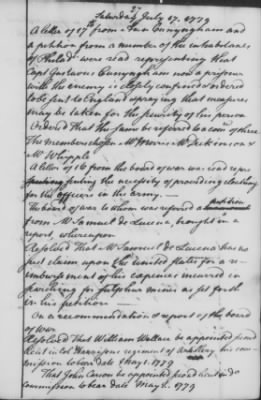 27
Saturday July 17. 1779
A letter of 17th from Ann Cunyngham and
a petition from a number of the inhabitants
of Philad. were read representing that
Capt Gustavus Cunyngham now a prisoner
with the enemy is closely confined & ordered
to be sent to England & praying that measures
may be taken for the security of his person
Ordered That the same be referred to a com of three
The members chosen Mr Dickinson &
Mr Whipple
A letter of 16 from the board of war was read
the necessity of providing cloathing
for the officers in the army.
petition
The board of war to whom was referred a
from Mr Samuel de Lucena, brought in a
report, whereupon
Resolved That Mr Samuel de Lucena has no
just claim upon the united states for a re-
imbursement of his expences incurred in
searching for sulphur mines as set forth
in his petition
On a recommendation & report of the board
of war
Resolved That William Wallace be appointed second
lieut in col Harrisons regiment of Artillery his com-
mission to bear date May 1. 1779
That John Carson be appointed second lieut in do
commission to bear date May 2. 1779